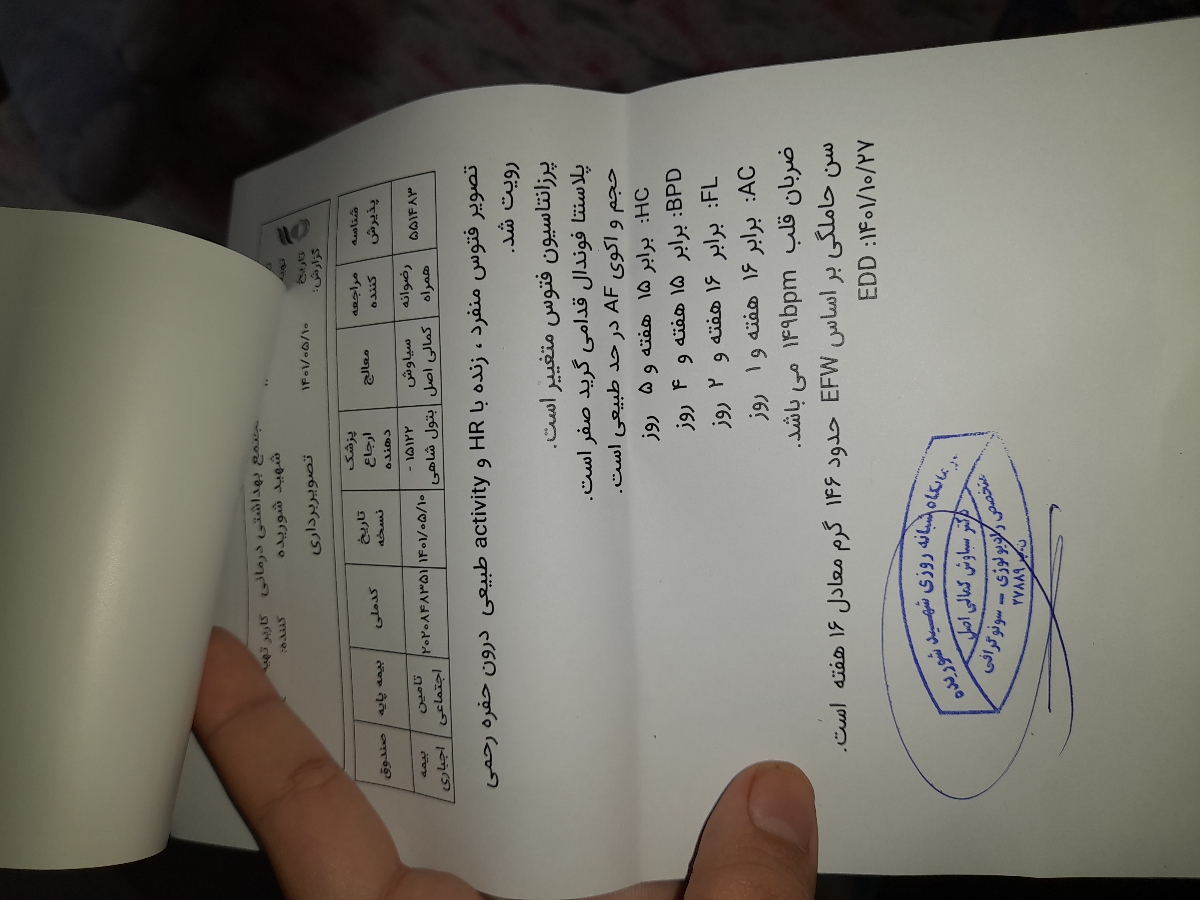 مجتمع بهداشتی درمانی
شهید شوریده
تصویربرداری
کاربر
کننده:
تاریخ
گزارش:
۱۴۰۱/۰۵/۱۰
شناسه پذیرش | مراجعه کننده | معالج | پزشک ارجاع دهنده | تاریخ نسخه | کدملی | بیمه پایه | صندوق
۵۵۱۴۸۳ | رضوانه همراه | سیاوش کمالی اصل | بتول شاهی ۱۵۱۲۲ - | ۱۴۰۱/۰۵/۱۰ | ۲۰۲۰۸۴۸۳۵۱ | تامین اجتماعی | بیمه اجباری
تصویر فتوس منفرد ، زنده با HR و activity طبیعی درون حفره رحمی
رویت شد.
پرزانتاسیون فتوس متغییر است.
پلاسنتا فوندال قدامی گرید صفر است.
حجم و اکوی AF در حد طبیعی است.
HC: برابر ۱۵ هفته و ۵ روز
BPD: برابر ۱۵ هفته و ۴ روز
FL: برابر ۱۶ هفته و ۲ روز
AC: برابر ۱۶ هفته و ۱ روز
ضربان قلب ۱۴۹bpm می باشد.
سن حاملگی بر اساس EFW حدود ۱۴۶ گرم معادل ۱۶ هفته است.
EDD :۱۴۰۱/۱۰/۲۷
درمانگاه شبانه روزی شهید شوریده
دکتر سیاوش کمالی اصل
متخصص رادیولوژی - سونوگرافی
ن.پ ۲۷۸۸۹